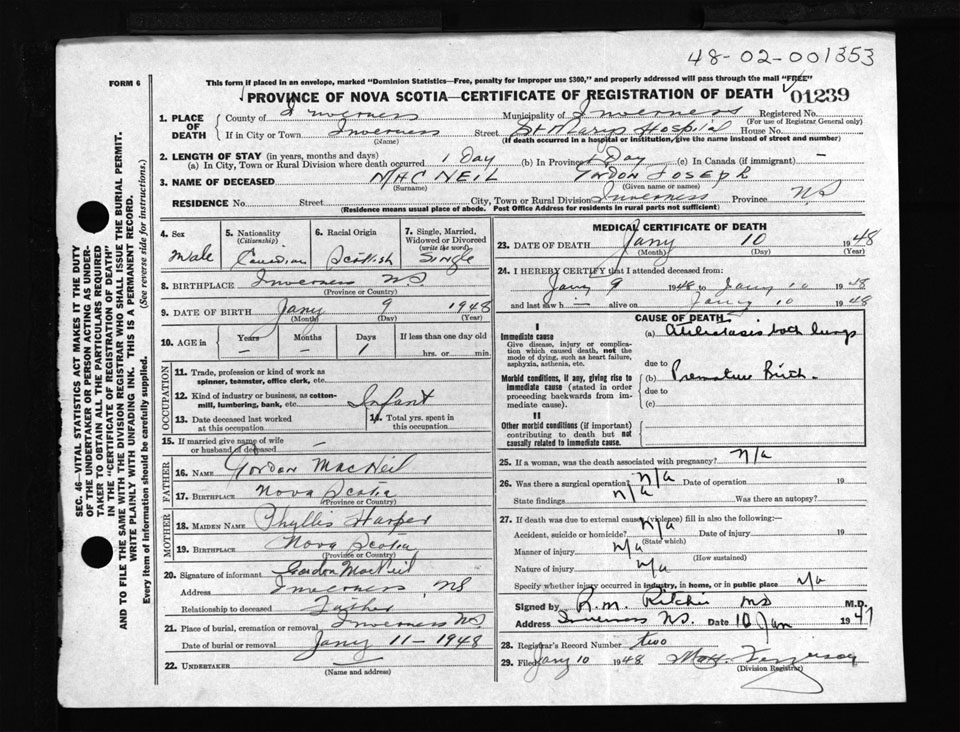 48-02-001353
FORM 6
This form if placed in an envelope, marked "Dominion Statistics—Free, penalty for improper use $300," and properly addressed will pass through the mail "FREE"
PROVINCE OF NOVA SCOTIA—CERTIFICATE OF REGISTRATION OF DEATH
01239
1. PLACE OF DEATH
County of Inverness Municipality of Inverness Registered No.
(For use of Registrar General only)
If in City or Town Inverness Street St Marys Hospital House No.
(Name) (If death occurred in a hospital or institution, give the name instead of street and number)
2. LENGTH OF STAY (in years, months and days)
(a) In City, Town or Rural Division where death occurred 1 Day (b) In Province 1 Day (c) In Canada (if immigrant) —
3. NAME OF DECEASED MACNEIL Gordon Joseph
(Surname) (Given name or names)
RESIDENCE No. Street City, Town or Rural Division Inverness Province N.S
(Residence means usual place of abode. Post Office Address for residents in rural parts not sufficient)
4. Sex
Male
5. Nationality
(Citizenship)
Canadian
6. Racial Origin
Scottish
7. Single, Married, Widowed or Divorced
(write the word)
Single
8. BIRTHPLACE Inverness N.S.
(Province or Country)
9. DATE OF BIRTH Jany 9 1948
(Month) (Day) (Year)
10. AGE in
Years Months Days If less than one day old
— — 1 hrs. or min.
OCCUPATION
11. Trade, profession or kind of work as spinner, teamster, office clerk, etc.
12. Kind of industry or business, as cotton-mill, lumbering, bank, etc. Infant
13. Date deceased last worked at this occupation
14. Total yrs. spent in this occupation
15. If married give name of wife or husband of deceased —
FATHER
16. NAME Gordon MacNeil
17. BIRTHPLACE Nova Scotia
(Province or Country)
MOTHER
18. MAIDEN NAME Phyllis Harper
19. BIRTHPLACE Nova Scotia
(Province or Country)
20. Signature of informant Gordon MacNeil
Address Inverness, NS
Relationship to deceased Father
21. Place of burial, cremation or removal Inverness N.S.
Date of burial or removal Jany 11-1948
22. UNDERTAKER —
(Name and address)
MEDICAL CERTIFICATE OF DEATH
23. DATE OF DEATH Jany 10 1948
(Month) (Day) (Year)
24. I HEREBY CERTIFY that I attended deceased from:
Jany 9 1948 to Jany 10 1948
and last saw h — alive on Jany 10 1948
CAUSE OF DEATH
I
Immediate cause
Give disease, injury or complication which caused death, not the mode of dying, such as heart failure, asphyxia, asthenia, etc.
(a) Atelectasis both lungs
due to
Morbid conditions, if any, giving rise to immediate cause (stated in order proceeding backwards from immediate cause).
(b) Premature Birth.
due to
(c)
II
Other morbid conditions (if important) contributing to death but not causally related to immediate cause.
25. If a woman, was the death associated with pregnancy? N/a
26. Was there a surgical operation? n/a Date of operation 19
State findings n/a Was there an autopsy?
27. If death was due to external causes (violence) fill in also the following:—
Accident, suicide or homicide? N/a Date of injury 19
(State which)
Manner of injury n/a
(How sustained)
Nature of injury n/a
Specify whether injury occurred in industry, in home, or in public place n/a
Signed by R.M. Ritchie MD M.D.
Address Inverness N.S. Date 10 Jan 1947
28. Registrar's Record Number two
29. Filed Jany 10 1948
(Division Registrar)
SEC. 46—VITAL STATISTICS ACT MAKES IT THE DUTY
OF THE UNDERTAKER OR PERSON ACTING AS UNDER-
TAKER TO OBTAIN ALL THE PARTICULARS REQUIRED
IN THE "CERTIFICATE OF REGISTRATION OF DEATH"
AND TO FILE THE SAME WITH THE DIVISION REGISTRAR WHO SHALL ISSUE THE BURIAL PERMIT.
WRITE PLAINLY WITH UNFADING INK. THIS IS A PERMANENT RECORD.
Every item of information should be carefully supplied. (See reverse side for instructions.)